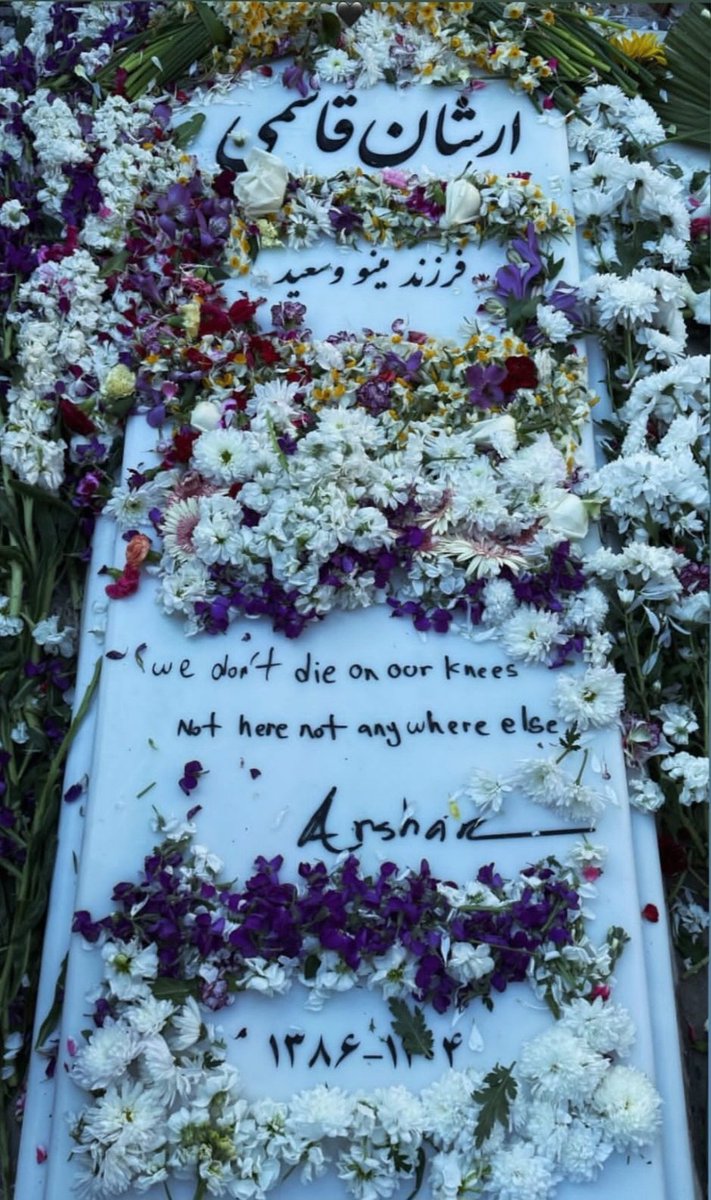 ارشان قاسمی
فرزند مینو و سعید
"we don't die on our knees
Not here not anywhere else
Arshan
۱۳۸۶-